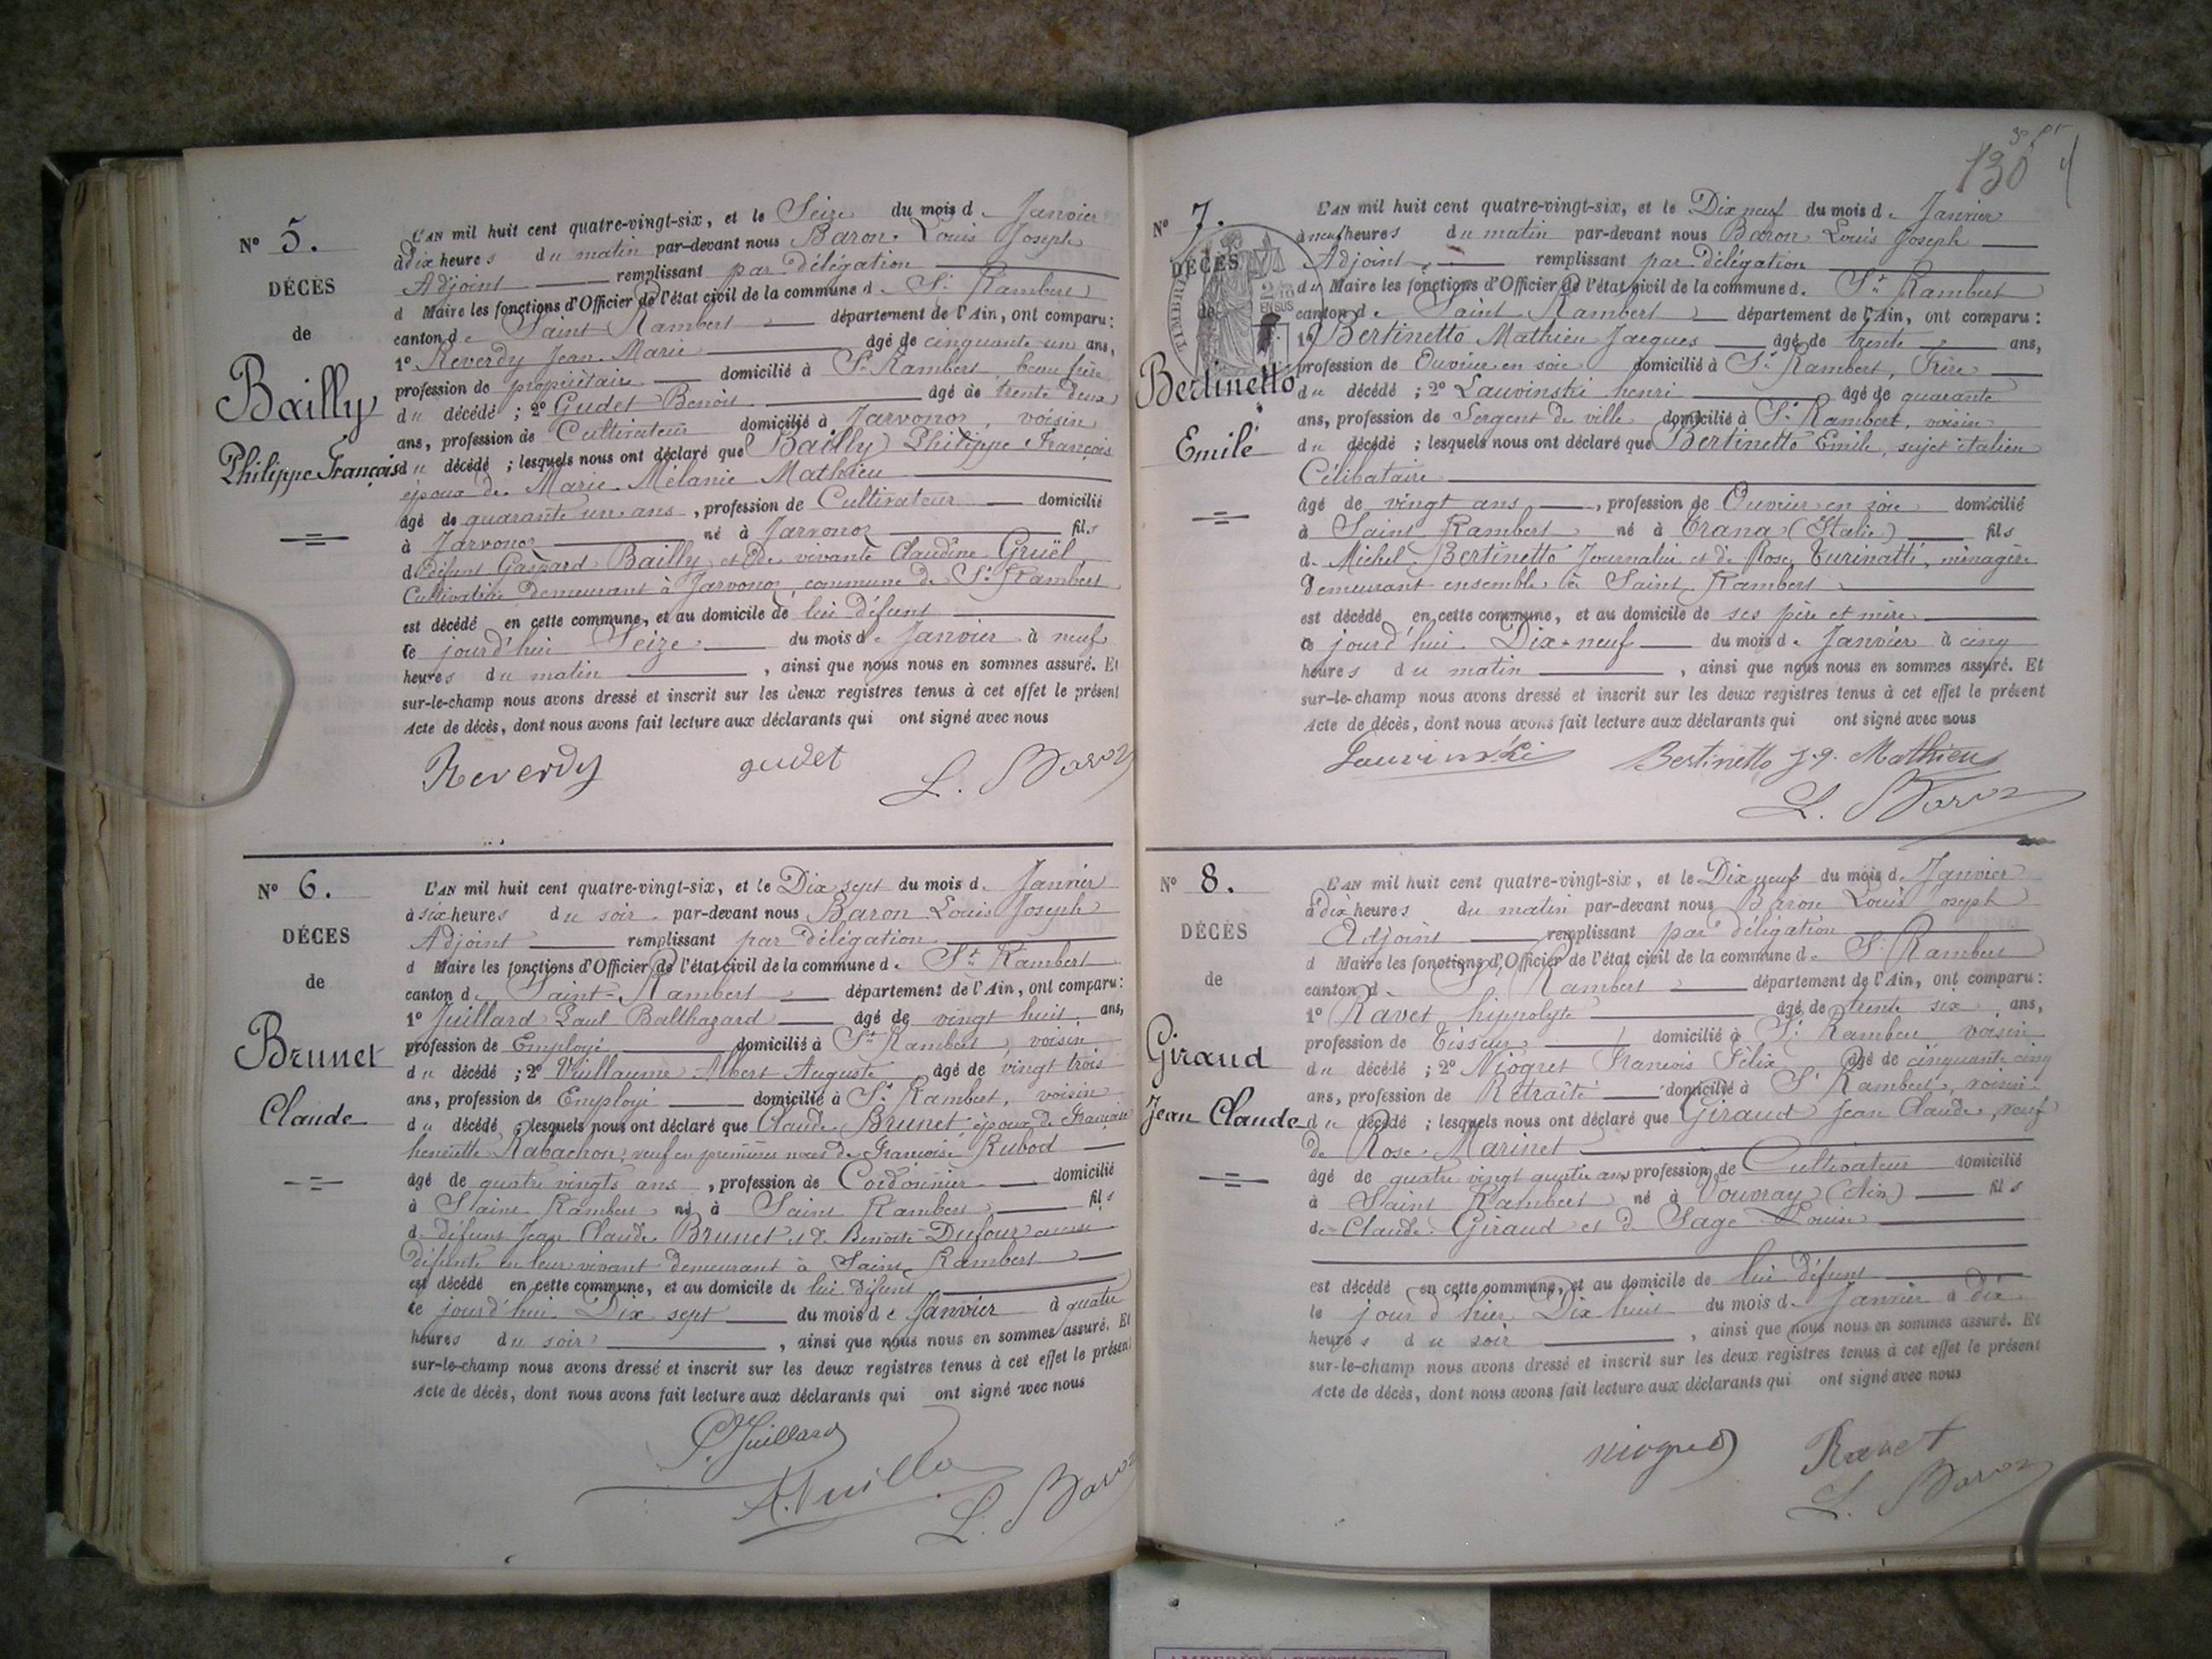 N° 5.
DÉCÈS
de
Bailly
Philippe François
L'AN mil huit cent quatre-vingt-six, et le Seize du mois de Janvier
à dix heures du matin par-devant nous Baron Louis Joseph
Adjoint remplissant par délégation
d Maire les fonctions d'Officier de l'état civil de la commune de St Rambert
canton de Saint Rambert département de l'Ain, ont comparu:
1° Reverdy Jean Marie âgé de cinquante un ans,
profession de propriétaire domicilié à St Rambert, beau frère
du décédé ; 2° Gudet Benoit âgé de trente deux
ans, profession de Cultivateur domicilié à Jarvonoz, voisin
du décédé ; lesquels nous ont déclaré que Bailly Philippe François
époux de Marie Mélanie Mathieu
âgé de quarante un ans, profession de Cultivateur domicilié
à Jarvonoz né à Jarvonoz fils
de défunt Gaspard Bailly et de vivante Claudine Gruël
Cultivatrice demeurant à Jarvonoz, commune de St Rambert
est décédé en cette commune, et au domicile de lui défunt
ce jourd'hui Seize du mois de Janvier à neuf
heures du matin, ainsi que nous nous en sommes assuré. Et
sur-le-champ nous avons dressé et inscrit sur les deux registres tenus à cet effet le présent
Acte de décès, dont nous avons fait lecture aux déclarants qui ont signé avec nous
Reverdy gudet L. Baron
N° 6.
DÉCES
de
Brunet
Claude
L'AN mil huit cent quatre-vingt-six, et le Dix sept du mois de Janvier
à six heures du soir par-devant nous Baron Louis Joseph
Adjoint remplissant par délégation
d Maire les fonctions d'Officier de l'état civil de la commune de St Rambert
canton de Saint-Rambert département de l'Ain, ont comparu:
1° Juillard Paul Balthazard âgé de vingt huit ans,
profession de Employé domicilié à St Rambert, voisin
du décédé ; 2° Vuillaume Albert Auguste âgé de vingt trois
ans, profession de Employé domicilié à St Rambert, voisin
du décédé ; lesquels nous ont déclaré que Claude Brunet époux de Françoise
henriette Rabachon, veuf en premières noces de Françoise Rubod
âgé de quatre vingts ans, profession de Cordonnier domicilié
à Saint Rambert né à Saint Rambert fils
de défunt Jean Claude Brunet et de Benoite Dufour aussi
défunte en leur vivant demeurant à Saint Rambert
est décédé en cette commune, et au domicile de lui défunt
ce jourd'hui Dix sept du mois de Janvier à quatre
heures du soir, ainsi que nous nous en sommes assuré. Et
sur-le-champ nous avons dressé et inscrit sur les deux registres tenus à cet effet le présent
Acte de décès, dont nous avons fait lecture aux déclarants qui ont signé avec nous
P. Juillard
A. Vuilla
L. Baron
130
N° 7.
DÉCÈS
de
TIMBRE
EN SUS
Bertinetto
Emile
L'AN mil huit cent quatre-vingt-six, et le Dix neuf du mois de Janvier
à neuf heures du matin par-devant nous Baron Louis Joseph
Adjoint remplissant par délégation
du Maire les fonctions d'Officier de l'état civil de la commune de St Rambert
canton de Saint Rambert département de l'Ain, ont comparu:
1° Bertinetto Mathieu Jacques âgé de trente ans,
profession de Ouvrier en soie domicilié à St Rambert, Frère
du décédé ; 2° Lauvinski henri âgé de quarante
ans, profession de Sergent de ville domicilié à St Rambert, voisin
du décédé ; lesquels nous ont déclaré que Bertinetto Emile, sujet italien
Célibataire
âgé de vingt ans, profession de Ouvrier en soie domicilié
à Saint Rambert né à Trana (Italie) fils
de Michel Bertinetto Journalier et de Rose Turinatti, ménagère
demeurant ensemble à Saint Rambert
est décédé en cette commune, et au domicile de ses père et mère
ce jourd'hui Dix-neuf du mois de Janvier à cinq
heures du matin, ainsi que nous nous en sommes assuré. Et
sur-le-champ nous avons dressé et inscrit sur les deux registres tenus à cet effet le présent
Acte de décès, dont nous avons fait lecture aux déclarants qui ont signé avec nous
Lauvinski Bertinetto J. J. Mathieu
L. Baron
N° 8.
DÉCÈS
de
Giraud
Jean Claude
L'AN mil huit cent quatre-vingt-six, et le Dix neuf du mois de Janvier
à dix heures du matin par-devant nous Baron Louis Joseph
Adjoint remplissant par délégation
d Maire les fonctions d'Officier de l'état civil de la commune de St Rambert
canton de St Rambert département de l'Ain, ont comparu:
1° Ravet hippolyte âgé de trente six ans,
profession de Tisseur domicilié à St Rambert voisin
du décédé ; 2° Niogret François Félix âgé de cinquante cinq
ans, profession de Retraité domicilié à St Rambert, voisin
du décédé ; lesquels nous ont déclaré que Giraud Jean Claude, veuf
de Rose Marinet
âgé de quatre vingt quatre ans profession de Cultivateur domicilié
à Saint Rambert né à Vouvray (Ain) fils
de Claude Giraud et d Sage Louise
est décédé en cette commune, et au domicile de lui défunt
le jour d'hier Dix huit du mois de Janvier à dix
heures du soir, ainsi que nous nous en sommes assuré. Et
sur-le-champ nous avons dressé et inscrit sur les deux registres tenus à cet effet le présent
Acte de décès, dont nous avons fait lecture aux déclarants qui ont signé avec nous
niogret Ravet
L. Baron